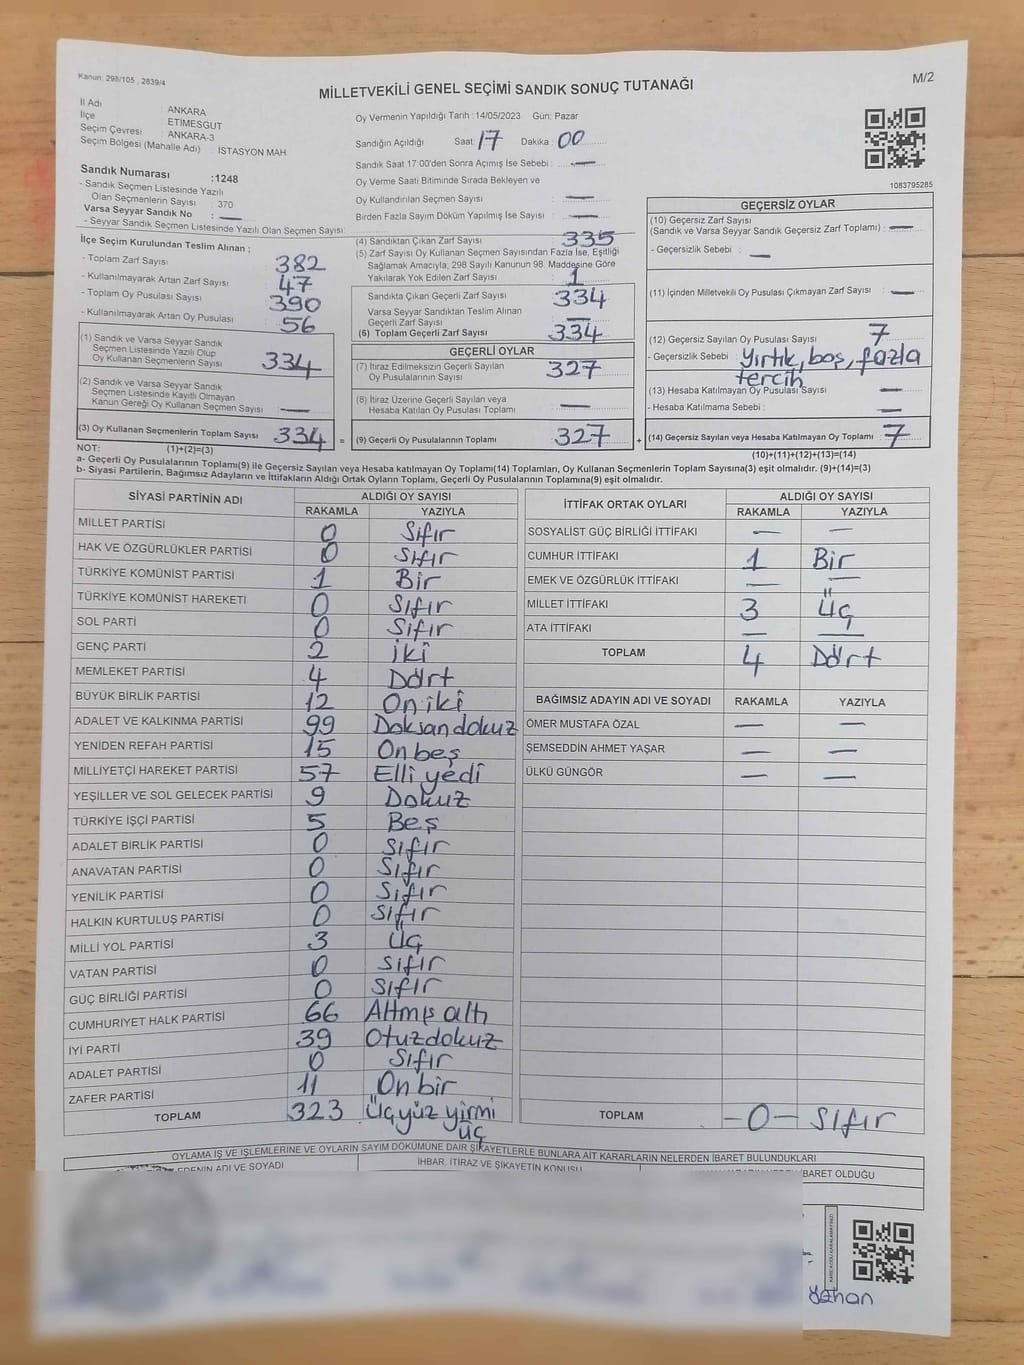 Kanun: 298/105 , 2839/4
M/2
MİLLETVEKİLİ GENEL SEÇİMİ SANDIK SONUÇ TUTANAĞI
İl Adı : ANKARA
İlçe : ETİMESGUT
Seçim Çevresi : ANKARA-3
Seçim Bölgesi (Mahalle Adı) : İSTASYON MAH
Sandık Numarası :1248
- Sandık Seçmen Listesinde Yazılı
Olan Seçmenlerin Sayısı : 370
Varsa Seyyar Sandık No : —
- Seyyar Sandık Seçmen Listesinde Yazılı Olan Seçmen Sayısı:
Oy Vermenin Yapıldığı Tarih : 14/05/2023 Gün: Pazar
Sandığın Açıldığı Saat: 17 Dakika : 00
Sandık Saat 17:00'den Sonra Açımış İse Sebebi : —
Oy Verme Saati Bitiminde Sırada Bekleyen ve
Oy Kullandırılan Seçmen Sayısı : —
Birden Fazla Sayım Döküm Yapılmış İse Sayısı : —
1083795285
İlçe Seçim Kurulundan Teslim Alınan ;
- Toplam Zarf Sayısı : 382
- Kullanılmayarak Artan Zarf Sayısı : 47
- Toplam Oy Pusulası Sayısı : 390
- Kullanılmayarak Artan Oy Pusulası : 56
(1) Sandık ve Varsa Seyyar Sandık
Seçmen Listesinde Yazılı Olup
Oy Kullanan Seçmenlerin Sayısı : 334
(2) Sandık ve Varsa Seyyar Sandık
Seçmen Listesinde Kayıtlı Olmayan
Kanun Gereği Oy Kullanan Seçmen Sayısı : —
(3) Oy Kullanan Seçmenlerin Toplam Sayısı : 334 =
(4) Sandıktan Çıkan Zarf Sayısı : 335
(5) Zarf Sayısı Oy Kullanan Seçmen Sayısından Fazla İse, Eşitliği
Sağlamak Amacıyla, 298 Sayılı Kanunun 98. Maddesine Göre
Yakılarak Yok Edilen Zarf Sayısı : 1
Sandıkta Çıkan Geçerli Zarf Sayısı : 334
Varsa Seyyar Sandıktan Teslim Alınan
Geçerli Zarf Sayısı : —
(6) Toplam Geçerli Zarf Sayısı : 334
GEÇERLİ OYLAR
(7) İtiraz Edilmeksizin Geçerli Sayılan
Oy Pusulalarının Sayısı : 327
(8) İtiraz Üzerine Geçerli Sayılan veya
Hesaba Katılan Oy Pusulası Toplamı : —
(9) Geçerli Oy Pusulalarının Toplamı : 327 +
GEÇERSİZ OYLAR
(10) Geçersiz Zarf Sayısı
(Sandık ve Varsa Seyyar Sandık Geçersiz Zarf Toplamı) : —
- Geçersizlik Sebebi : —
(11) İçinden Milletvekili Oy Pusulası Çıkmayan Zarf Sayısı : —
(12) Geçersiz Sayılan Oy Pusulası Sayısı : 7
- Geçersizlik Sebebi : Yırtık, boş, fazla
tercih
(13) Hesaba Katılmayan Oy Pusulası Sayısı : —
- Hesaba Katılmama Sebebi : —
(14) Geçersiz Sayılan veya Hesaba Katılmayan Oy Toplamı : 7
NOT: (1)+(2)=(3)
(10)+(11)+(12)+(13)=(14)
a- Geçerli Oy Pusulalarının Toplamı(9) ile Geçersiz Sayılan veya Hesaba katılmayan Oy Toplamı(14) Toplamları, Oy Kullanan Seçmenlerin Toplam Sayısına(3) eşit olmalıdır. (9)+(14)=(3)
b- Siyasi Partilerin, Bağımsız Adayların ve İttifakların Aldığı Ortak Oyların Toplamı, Geçerli Oy Pusulalarının Toplamına(9) eşit olmalıdır.
SİYASİ PARTİNİN ADI ALDIĞI OY SAYISI
RAKAMLA YAZIYLA
MİLLET PARTİSİ 0 Sıfır
HAK VE ÖZGÜRLÜKLER PARTİSİ 0 Sıfır
TÜRKİYE KOMÜNİST PARTİSİ 1 Bir
TÜRKİYE KOMÜNİST HAREKETİ 0 Sıfır
SOL PARTİ 0 Sıfır
GENÇ PARTİ 2 İki
MEMLEKET PARTİSİ 4 Dört
BÜYÜK BİRLİK PARTİSİ 12 On iki
ADALET VE KALKINMA PARTİSİ 99 Doksan dokuz
YENİDEN REFAH PARTİSİ 15 On beş
MİLLİYETÇİ HAREKET PARTİSİ 57 Elli yedi
YEŞİLLER VE SOL GELECEK PARTİSİ 9 Dokuz
TÜRKİYE İŞÇİ PARTİSİ 5 Beş
ADALET BİRLİK PARTİSİ 0 Sıfır
ANAVATAN PARTİSİ 0 Sıfır
YENİLİK PARTİSİ 0 Sıfır
HALKIN KURTULUŞ PARTİSİ 0 Sıfır
MİLLİ YOL PARTİSİ 3 Üç
VATAN PARTİSİ 0 Sıfır
GÜÇ BİRLİĞİ PARTİSİ 0 Sıfır
CUMHURİYET HALK PARTİSİ 66 Altmış altı
İYİ PARTİ 39 Otuzdokuz
ADALET PARTİSİ 0 Sıfır
ZAFER PARTİSİ 11 On bir
TOPLAM 323 Üçyüz yirmi
üç
İTTİFAK ORTAK OYLARI ALDIĞI OY SAYISI
RAKAMLA YAZIYLA
SOSYALİST GÜÇ BİRLİĞİ İTTİFAKI — —
CUMHUR İTTİFAKI 1 Bir
EMEK VE ÖZGÜRLÜK İTTİFAKI — —
MİLLET İTTİFAKI 3 Üç
ATA İTTİFAKI — —
TOPLAM 4 Dört
BAĞIMSIZ ADAYIN ADI VE SOYADI RAKAMLA YAZIYLA
ÖMER MUSTAFA ÖZAL — —
ŞEMSEDDİN AHMET YAŞAR — —
ÜLKÜ GÜNGÖR — —
TOPLAM -0- Sıfır
OYLAMA İŞ VE İŞLEMLERİNE VE OYLARIN SAYIM DÖKÜMÜNE DAİR ŞİKAYETLERLE BUNLARA AİT KARARLARIN NELERDEN İBARET BULUNDUKLARI
EDENİN ADI VE SOYADI İHBAR, İTİRAZ VE ŞİKAYETİN KONUSU BARET OLDUĞU